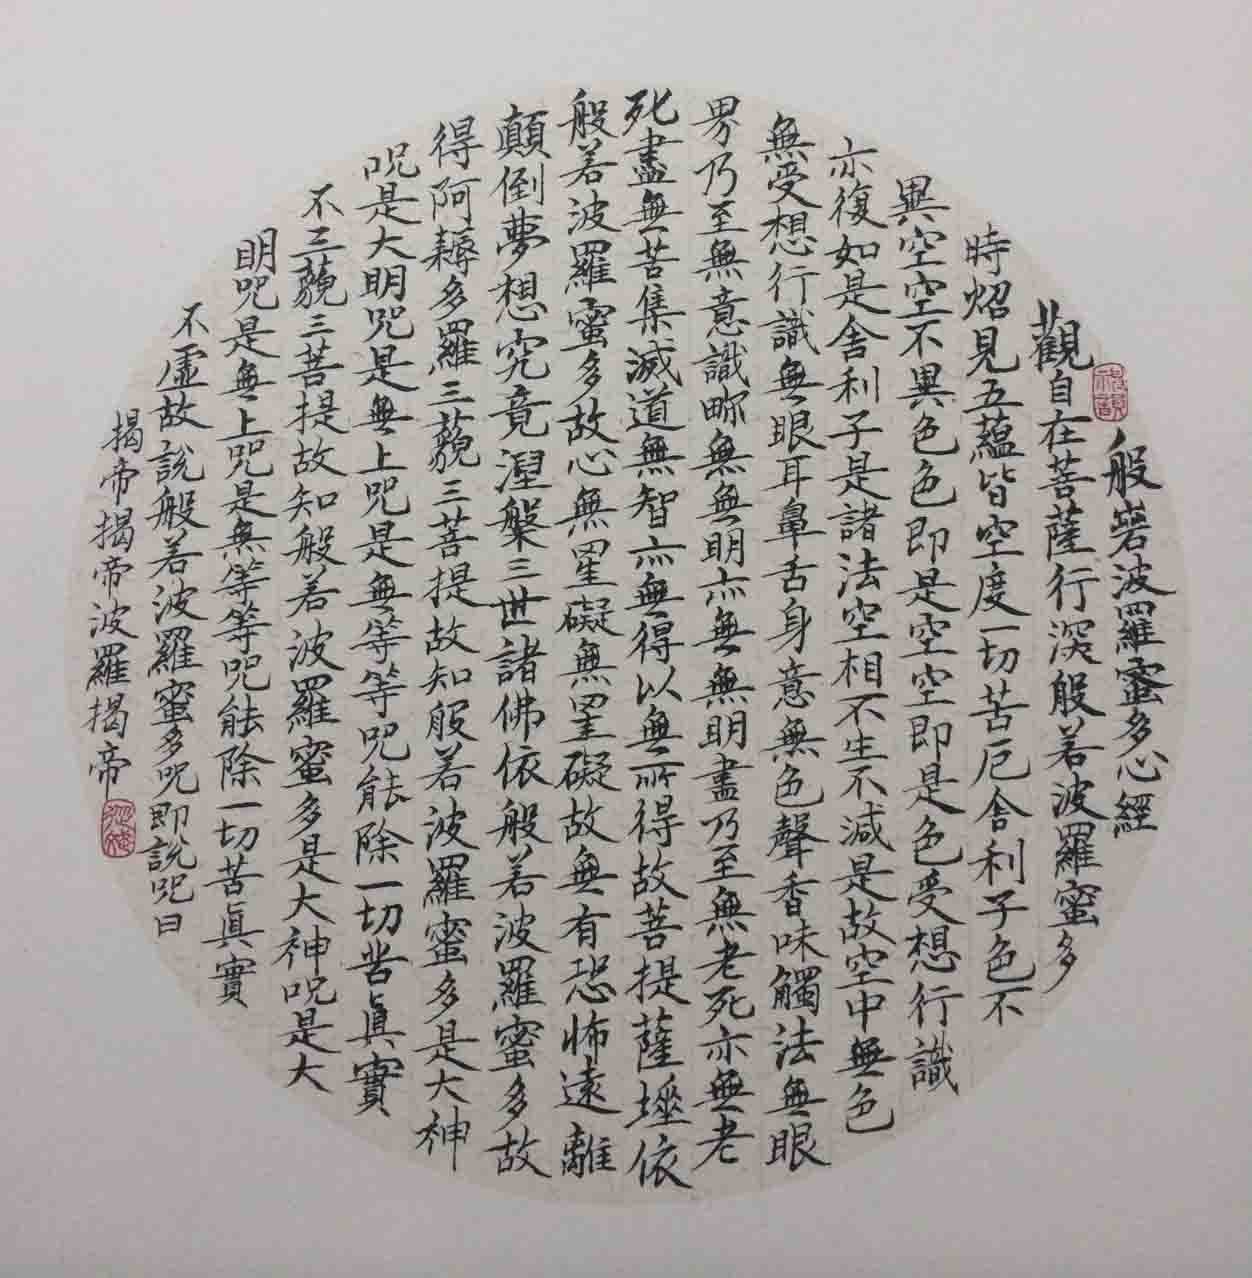 般若波羅蜜多心經
觀自在菩薩行深般若波羅蜜多
時炤見五蘊皆空度一切苦厄舍利子色不
異空空不異色色即是空空即是色受想行識
亦復如是舍利子是諸法空相不生不減是故空中無色
無受想行識無眼耳鼻舌身意無色聲香味觸法無眼
界乃至無意識畍無無明亦無無明盡乃至無老死亦無老
死盡無苦集滅道無智亦無得以無所得故菩提薩埵依
般若波羅蜜多故心無罣礙無罣礙故無有恐怖遠離
顛倒夢想究竟涅槃三世諸佛依般若波羅蜜多故
得阿耨多羅三藐三菩提故知般若波羅蜜多是大神
呪是大明呪是無上呪是無等等呪能除一切苦眞實
不三藐三菩提故知般若波羅蜜多是大神呪是大
明呪是無上呪是無等等呪能除一切苦眞實
不虛故說般若波羅蜜多呪即說呪曰
揭帝揭帝波羅揭帝